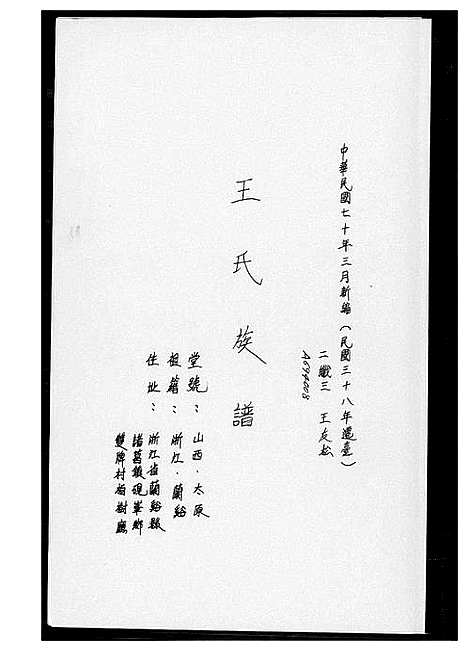 中華民國七十年三月新編(民國三十八年遷臺)
二縱三 王友松
A694008
王氏族譜
堂號:山西.太原
祖籍:浙江.蘭谿
住址:浙江省蘭谿縣
諸葛鎮硯峯鄉
雙牌村柏樹廳